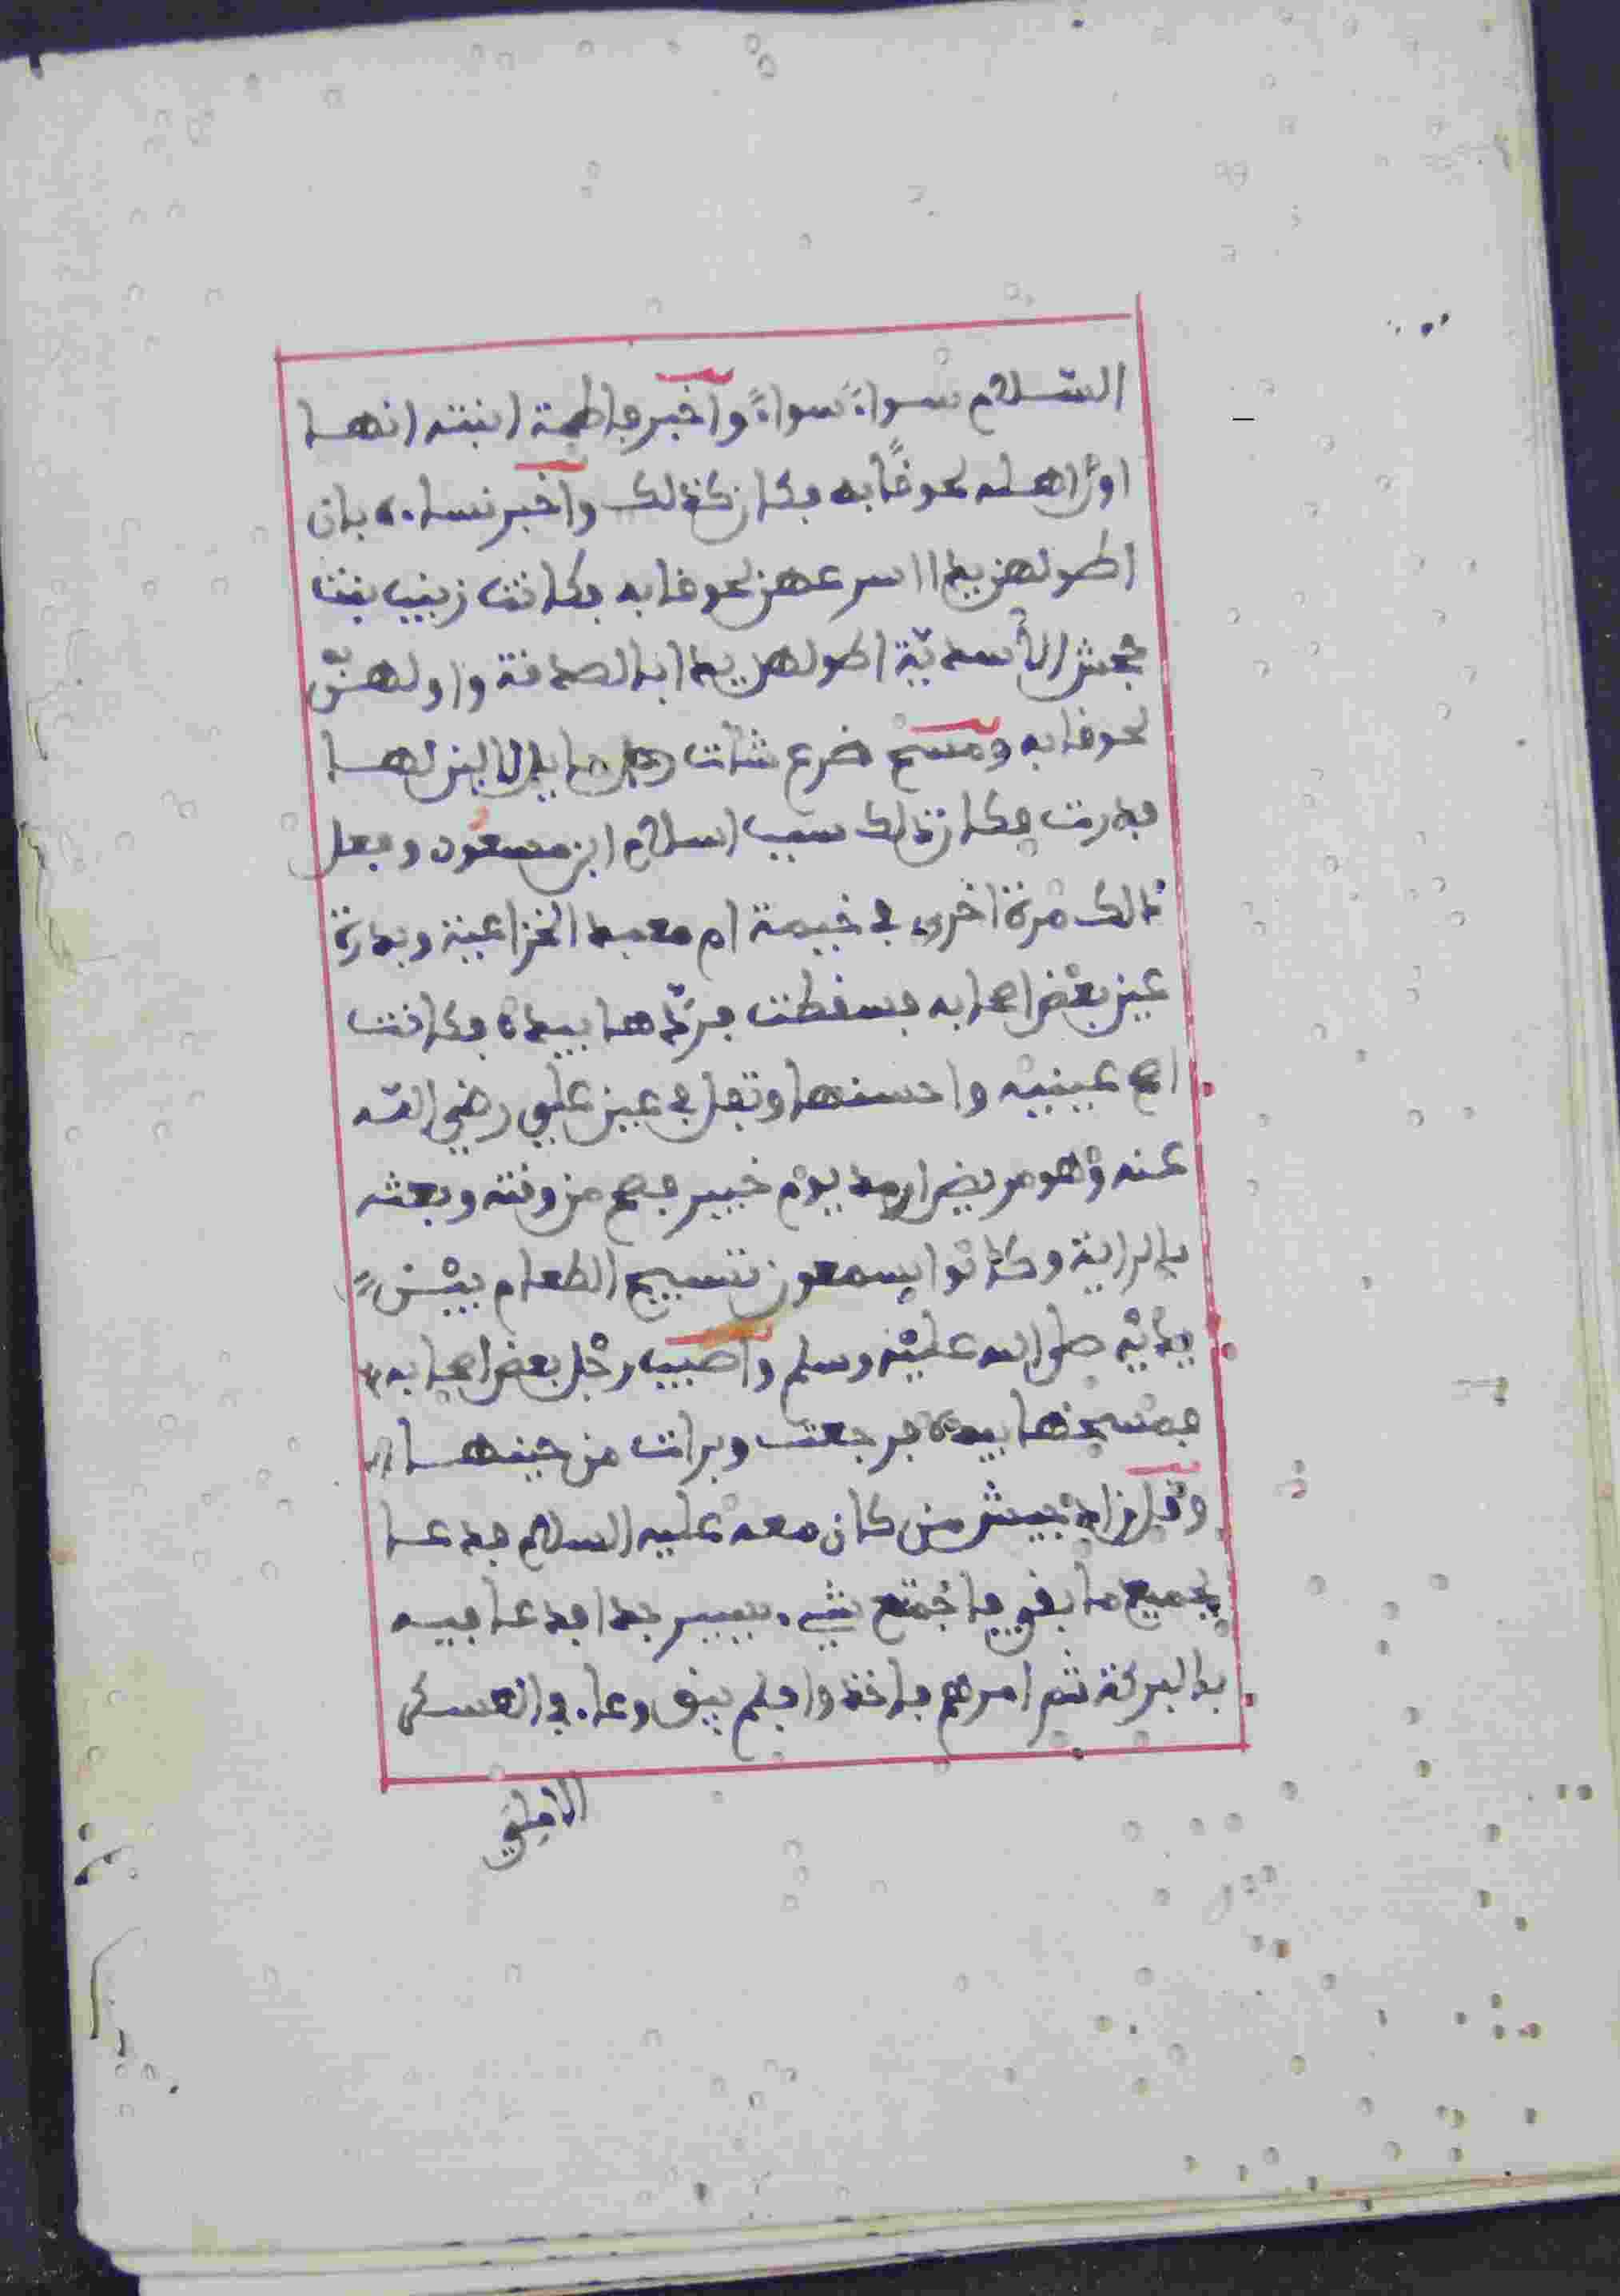 السّلام سواءً سواءً واخبر فاطمة ابنته انها
اول اهله لحوقًا به فكان كذلك واخبر نساءه بان
اطولهن يدا اسرعهن لحوقا به فكانت زينب بنت
جحش الأسديّة اطولهن يدا بالصدقة واولهنّ
لحوقا به ومسح ضرع شات حايل لا لبن لها
فدرت فكان ذلك سبب اسلام ابن مسعود وفعل
ذالك مرة اخرى في خيمة ام معبد الخزاعية وبدرت
عين بعض اصحابه فسقطت فردّها بيده فكانت
اصح عينيه واحسنها وتفل في عين علي رضي الله
عنه وهو مريض ارمد يوم خيبر فصح من وقته وبعثه
بالراية وكانوا يسمعون تسبيح الطعام بين
يديه صلى الله عليه وسلم واصيب رجل بعض اصحابه
فمسحها بيده فرجعت وبرات من حينها
وقل زاد جيش من كان معه عليه السلام فدعا
بجميع ما بقي فاجتمع شيء يسير جدا فدعا فيه
بالبركة ثم امرهم فاخذوا فلم يبق وعاء في العسكر
الا ملئ